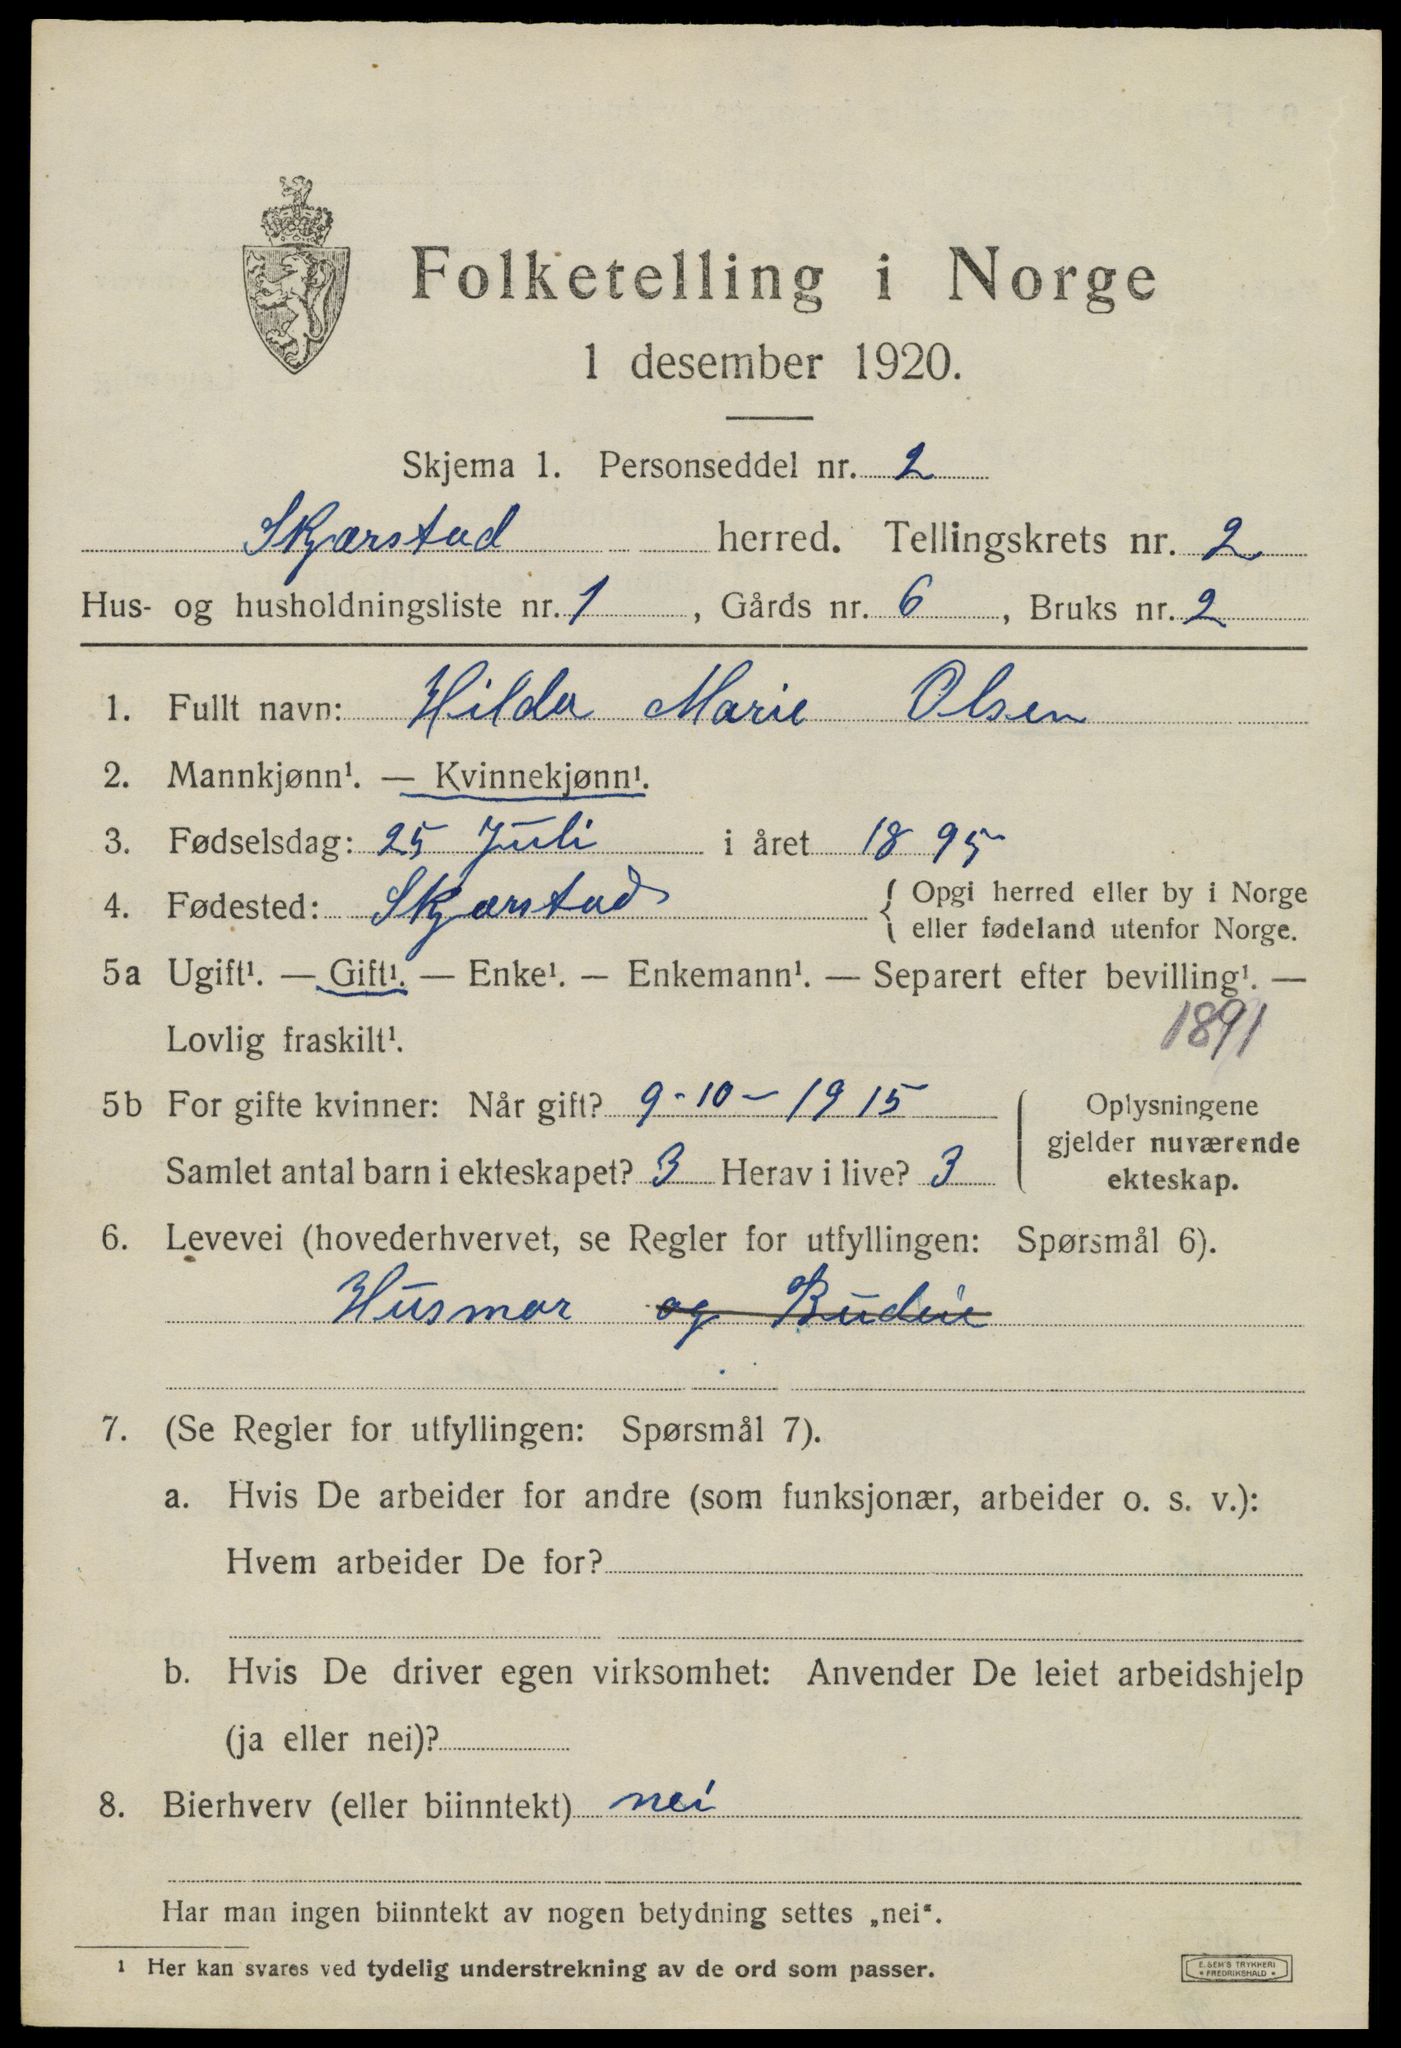 Folketelling i Norge
1 desember 1920.
Skjema 1. Personseddel nr. 2
Skjærstad herred. Tellingskrets nr. 2
Hus- og husholdningsliste nr. 1, Gårds nr. 6, Bruks nr. 2
1. Fullt navn: Hilda Marie Olsen
2. Mannkjønn¹. — Kvinnekjønn¹.
3. Fødselsdag: 25 Juli i året 1895
4. Fødested: Skjærstad { Opgi herred eller by i Norge
eller fødeland utenfor Norge.
5a Ugift¹. — Gift¹. — Enke¹. — Enkemann¹. — Separert efter bevilling¹. —
Lovlig fraskilt¹. 1891
5b For gifte kvinner: Når gift? 9-10-1915
Samlet antal barn i ekteskapet? 3 Herav i live? 3
Oplysningene
gjelder nuværende
ekteskap.
6. Levevei (hovederhvervet, se Regler for utfyllingen: Spørsmål 6).
Husmor og Budeie
7. (Se Regler for utfyllingen: Spørsmål 7).
a. Hvis De arbeider for andre (som funksjonær, arbeider o. s. v.):
Hvem arbeider De for?
b. Hvis De driver egen virksomhet: Anvender De leiet arbeidshjelp
(ja eller nei)?
8. Bierhverv (eller biinntekt) nei
Har man ingen biinntekt av nogen betydning settes „nei“.
¹ Her kan svares ved tydelig understrekning av de ord som passer.
E. SEM'S TRYKKERI
FREDRIKSHALD